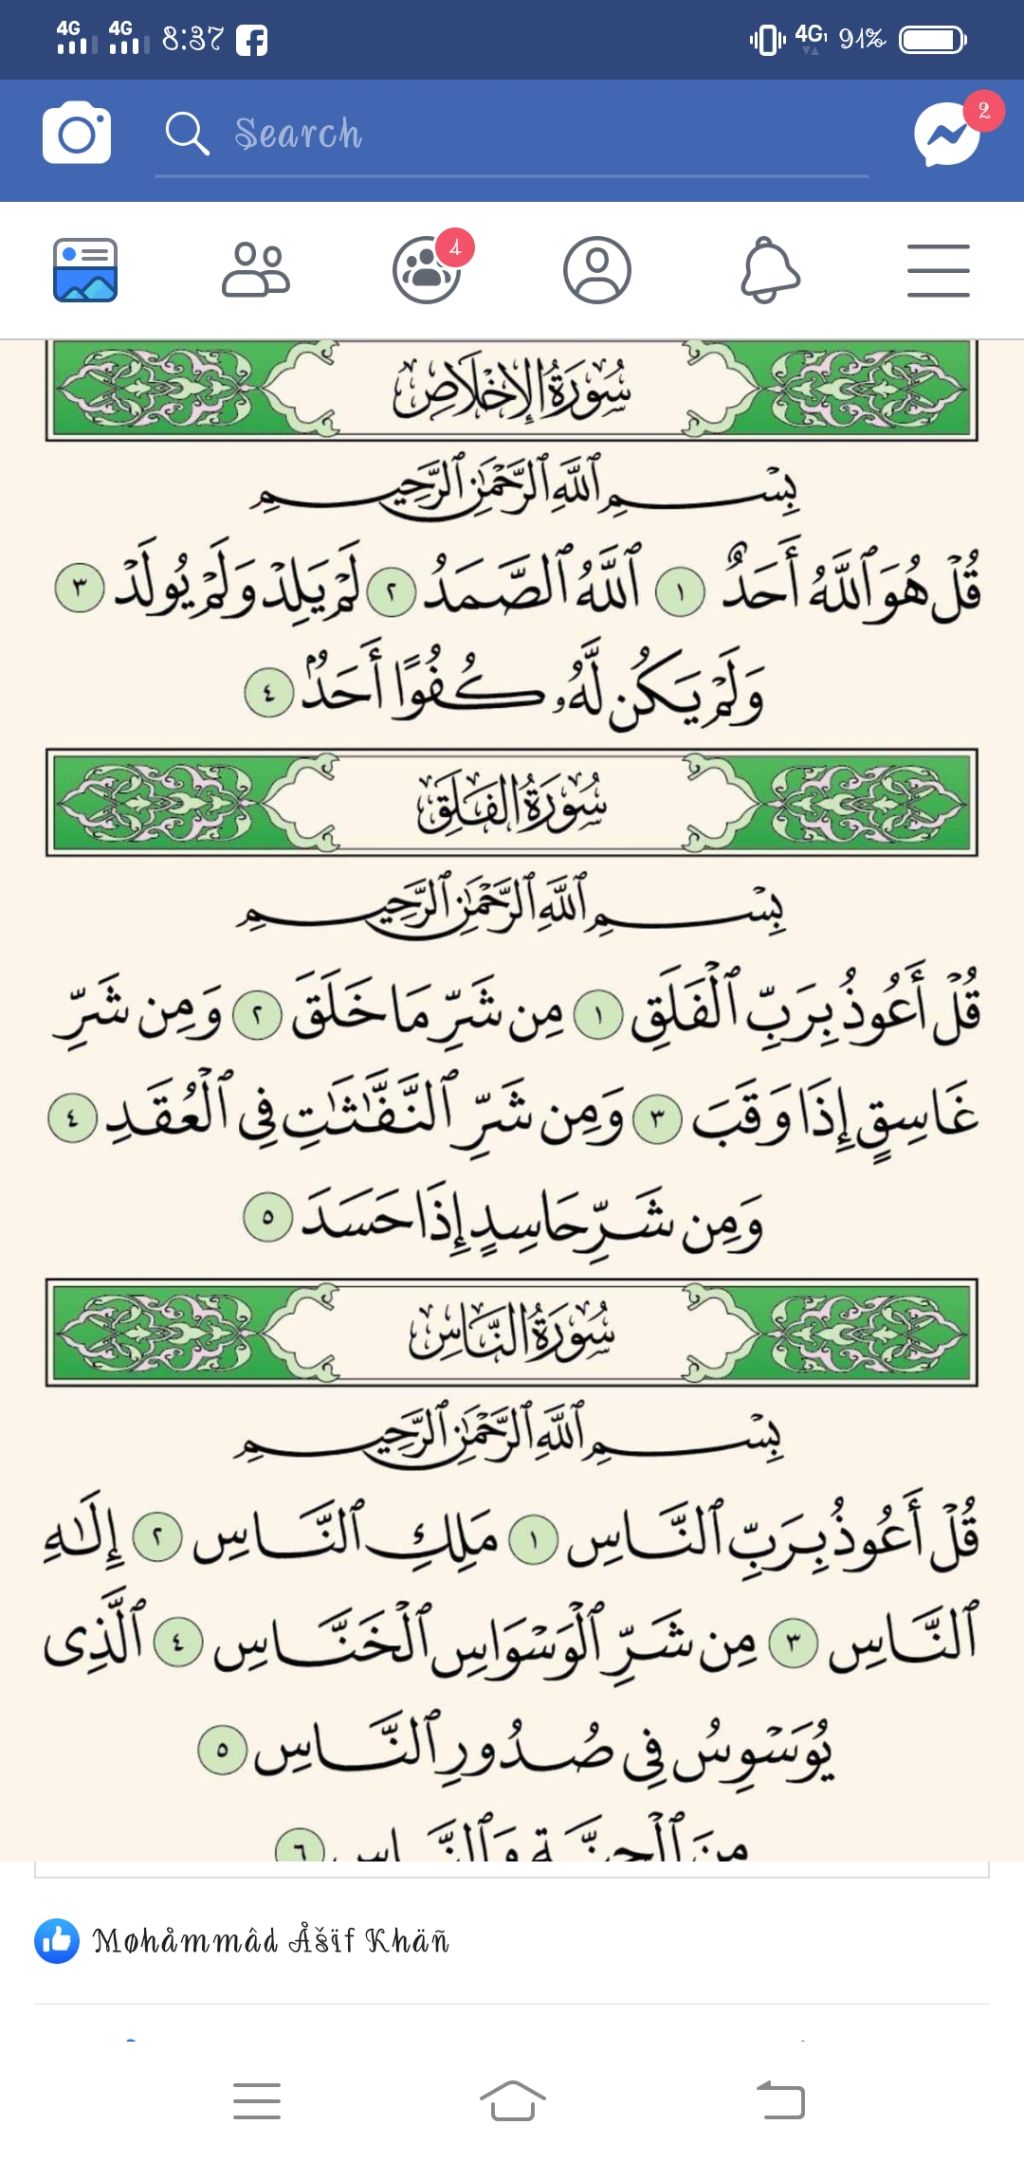 4G 4G 8:37 4G1 91%
Search 2
4
سُورَةُ الإِخْلَاصِ
بِسْمِ ٱللَّهِ ٱلرَّحْمَٰنِ ٱلرَّحِيمِ
قُلْ هُوَ ٱللَّهُ أَحَدٌ ١ ٱللَّهُ ٱلصَّمَدُ ٢ لَمْ يَلِدْ وَلَمْ يُولَدْ ٣
وَلَمْ يَكُن لَّهُۥ كُفُوًا أَحَدٌۢ ٤
سُورَةُ الفَلَقِ
بِسْمِ ٱللَّهِ ٱلرَّحْمَٰنِ ٱلرَّحِيمِ
قُلْ أَعُوذُ بِرَبِّ ٱلْفَلَقِ ١ مِن شَرِّ مَا خَلَقَ ٢ وَمِن شَرِّ
غَاسِقٍ إِذَا وَقَبَ ٣ وَمِن شَرِّ ٱلنَّفَّٰثَٰتِ فِى ٱلْعُقَدِ ٤
وَمِن شَرِّ حَاسِدٍ إِذَا حَسَدَ ٥
سُورَةُ النَّاسِ
بِسْمِ ٱللَّهِ ٱلرَّحْمَٰنِ ٱلرَّحِيمِ
قُلْ أَعُوذُ بِرَبِّ ٱلنَّاسِ ١ مَلِكِ ٱلنَّاسِ ٢ إِلَٰهِ
ٱلنَّاسِ ٣ مِن شَرِّ ٱلْوَسْوَاسِ ٱلْخَنَّاسِ ٤ ٱلَّذِى
يُوَسْوِسُ فِى صُدُورِ ٱلنَّاسِ ٥
مِنَ ٱلْجِنَّةِ وَٱلنَّاسِ ٦
Møhåmmâd Åšïf Khäñ